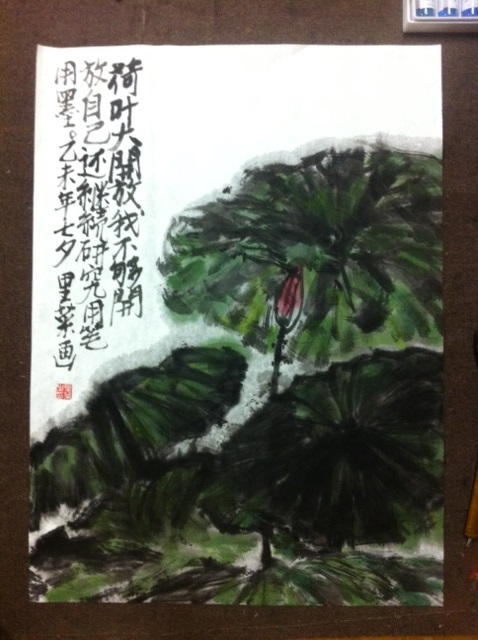 荷叶大開放我不够開
放自己还继续研究用笔
用墨。乙未年七夕里菜画